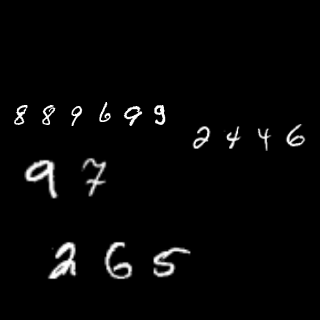 889699
2446
97
265